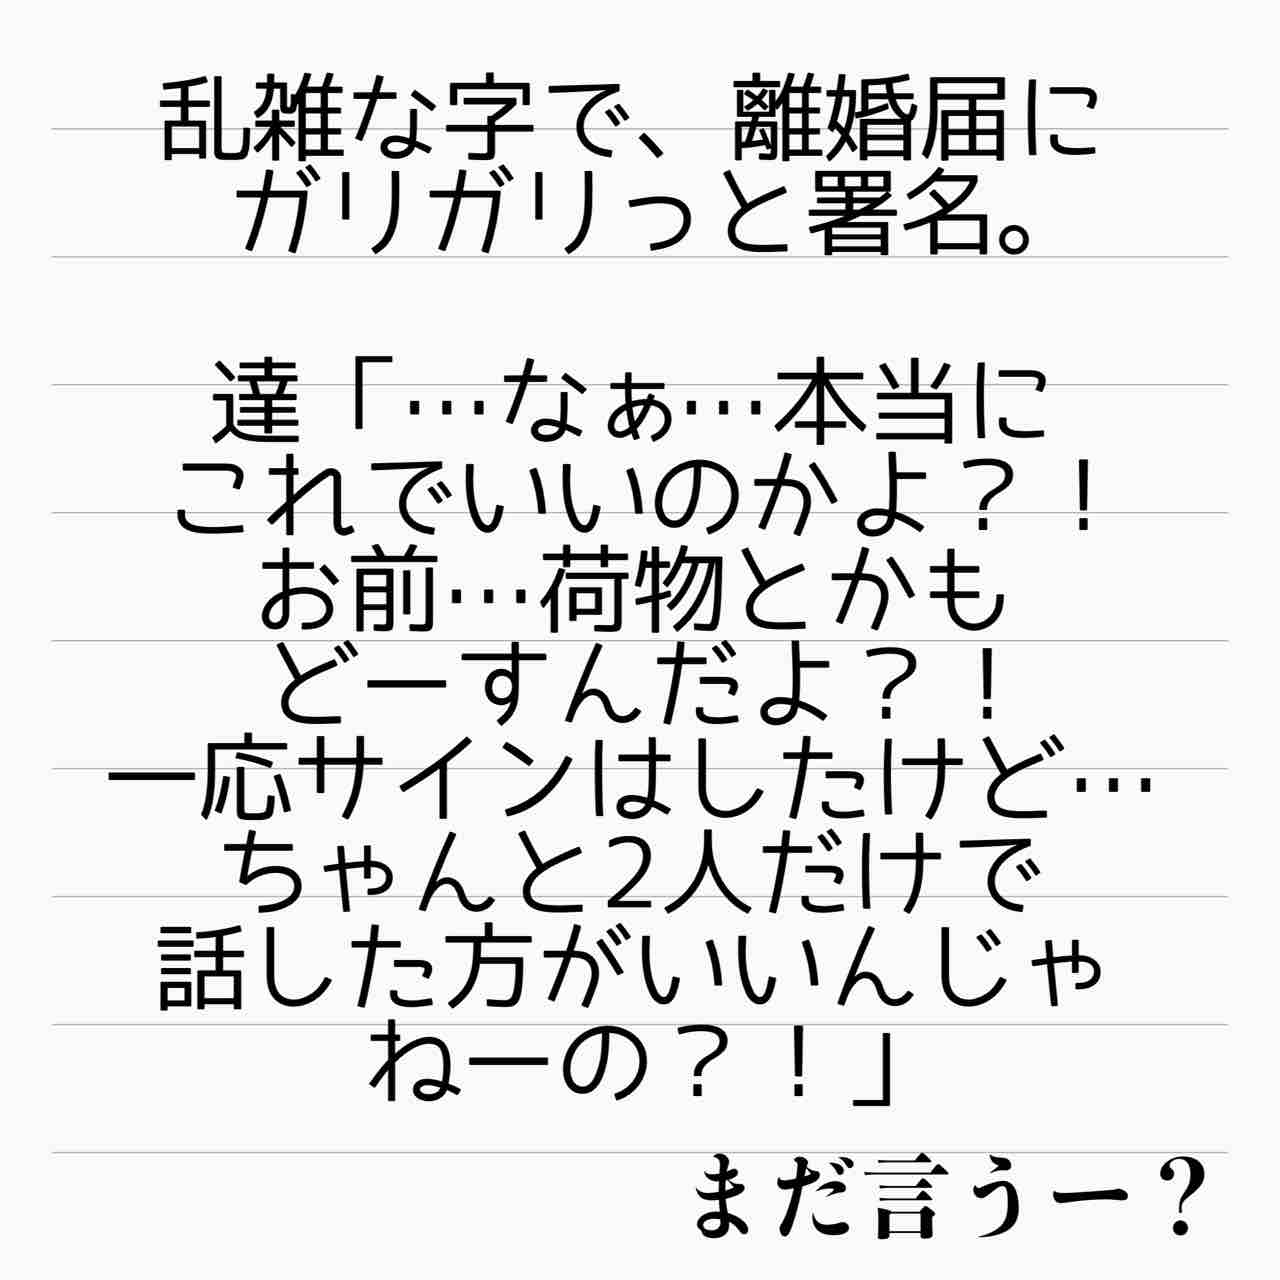 乱雑な字で、離婚届に
ガリガリっと署名。
達「…なぁ…本当に
これでいいのかよ？！
お前…荷物とかも
どーすんだよ？！
一応サインはしたけど…
ちゃんと2人だけで
話した方がいいんじゃ
ねーの？！」
まだ言うー？